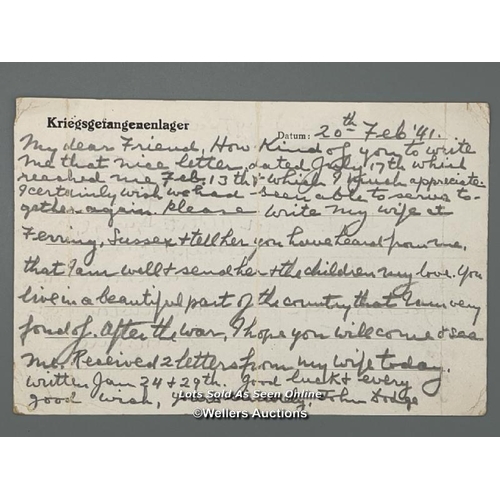 Kriegsgefangenenlager
Datum: 20th Feb '41.
My dear Friend, How Kind of you to write
me that nice letter, dated July 17th which
reached me Feb. 13th, which I much appreciate.
I certainly wish we had been able to serve to-
gether again. Please write my wife at
Ferring, Sussex & tell her you have heard from me,
that I am well & send her & the children my love. You
live in a beautiful part of the country that I am very
fond of. After the war, I hope you will come & see
me. Received 2 letters from my wife today,
written Jan 24 & 29th. Good luck & every
good wish, John Dodge
Lots Sold AS SEEN - No Returns
©Wellers Auctions